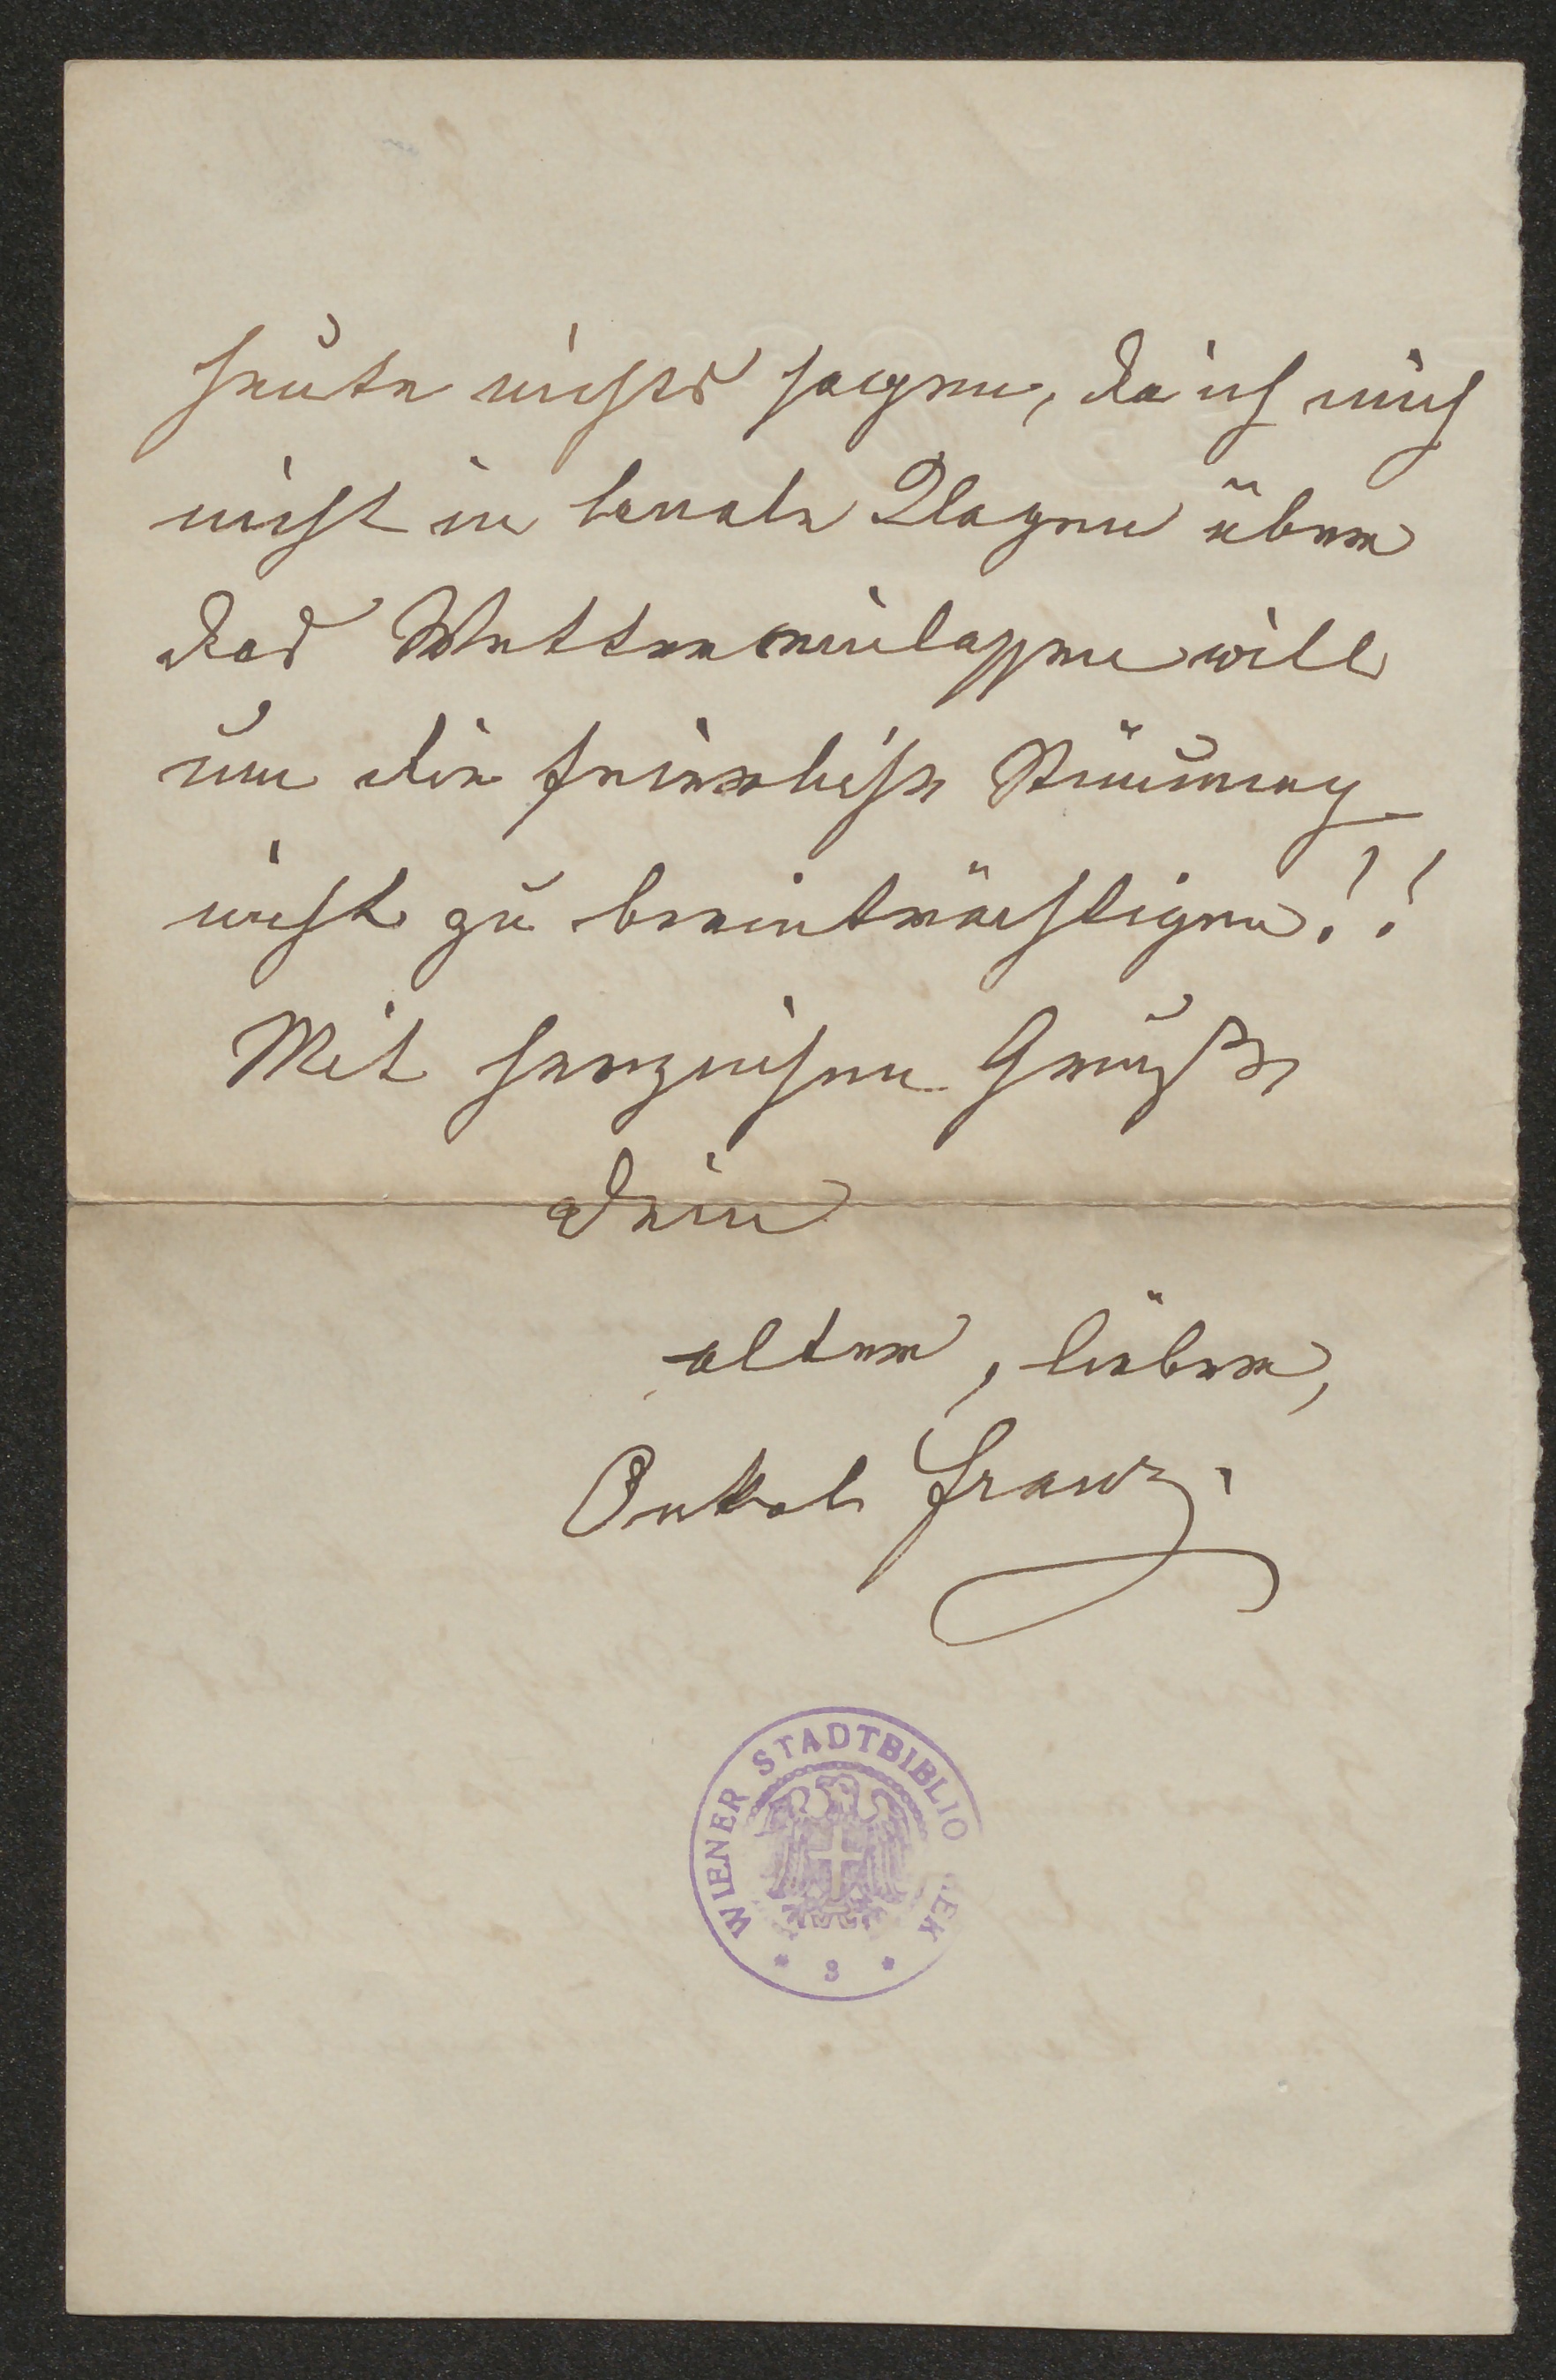 heute nichts sagen, da ich mich
nicht in banale Klagen über
das Wetter einlassen will
um die feierliche Stimmung
nicht zu beeinträchtigen!!
Mit herzlichem Gruße
Dein
alter, lieber,
Onkel Franz.
WIENER STADTBIBLIO EK
* 3 *